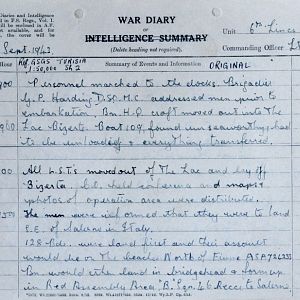 Diaries and Intelligence
d in F.S. Regs., Vol. I.
will be enclosed in A.F.
s not available, and for
ed, the cover will be
WAR DIARY
OF
INTELLIGENCE SUMMARY
(Delete heading not required).
Unit 6th Lincs
Commanding Officer Lt
Sept. 1943.
Ref GSGS TUNISIA
1:50,000
Summary of Events and Information
ORIGINAL
900
Personnel marched to the docks. Brigadier
G.P. Harding D.S.O. M.C. addressed men prior to
embarkation. Bn. H.Q craft moved out into The
Lac Bizerta. Boat 109, found unseaworthy, had to
be unloaded & everything transferred.
All L.S.T's moved out of The Lac and lay off
Bizerta. C.O. held conference and maps &
photos of operation area were distributed.
The men were informed that they were to land
S.E. of Salerno in Italy.
128 Bde. were land first and their assault
would be on the beaches North of
Bn. would then land in bridgehead & form up
in Red Assembly Area 'B'. 46 Recce to Salerno